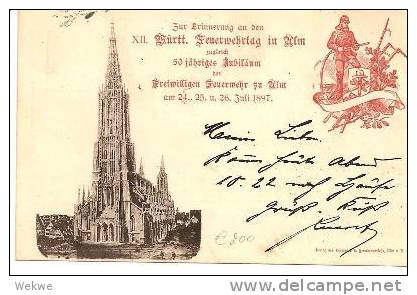 Zur Erinnerung an den
XII. Württ. Feuerwehrtag in Ulm
zugleich
50 jähriges Jubiläum
der
Freiwilligen Feuerwehr zu Ulm
am 24., 25. u. 26. Juli 1897.
Meine Liebe.
Komme heute Abend
10.22 nach Hause
Gruß. Kuß
€200
Wekwe
delcampe.net